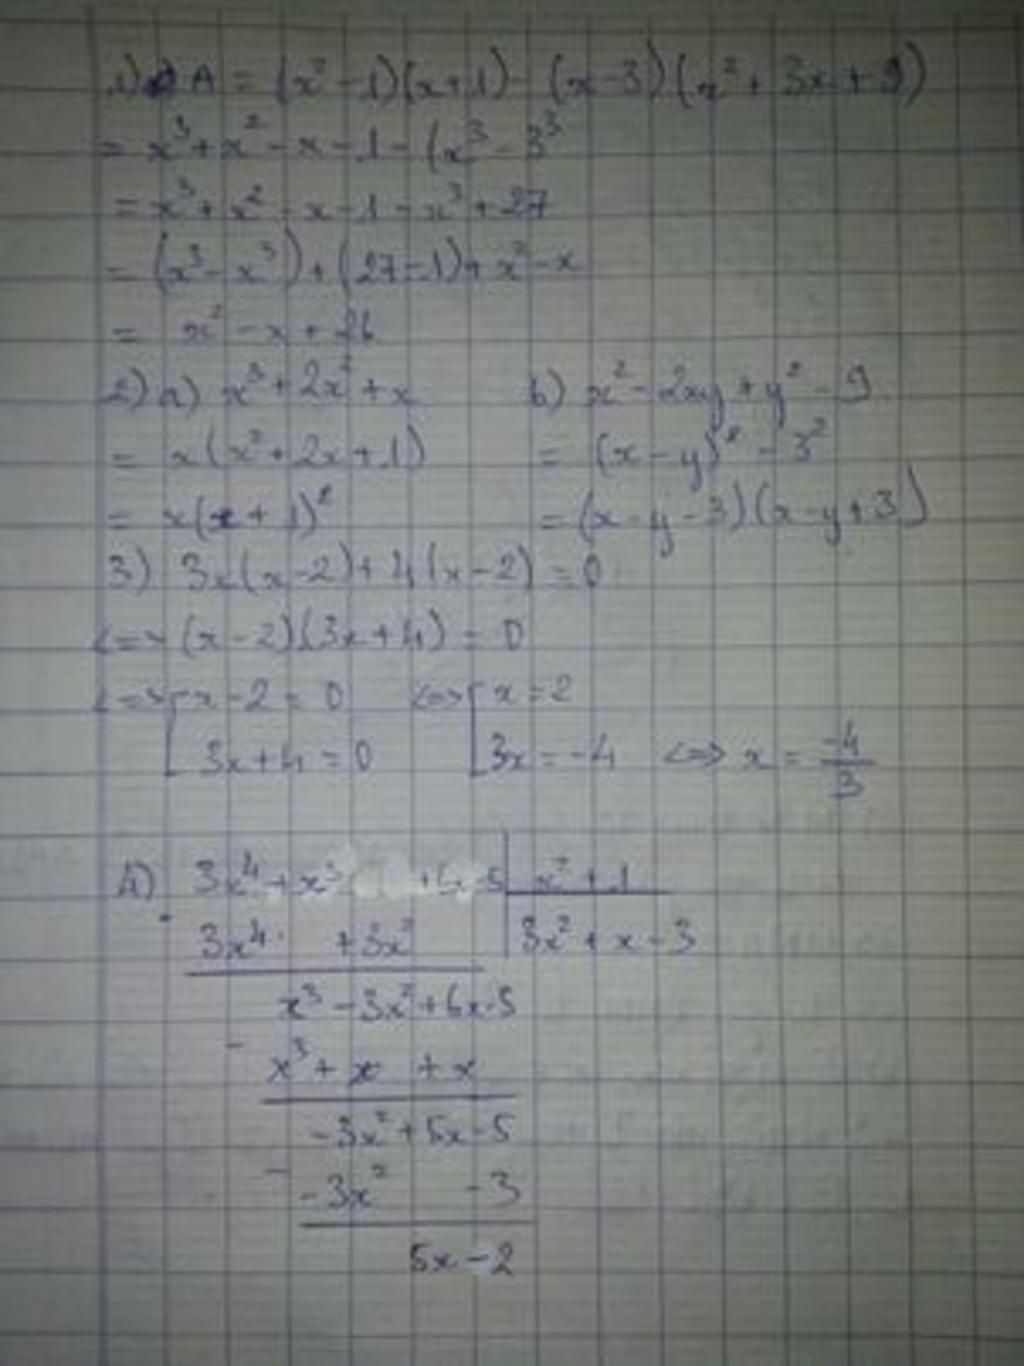 1) A = (x² - 1)(x+1) - (x-3)(x² + 3x + 9)
= x³ + x² - x - 1 - (x³ - 3³
= x³ + x² - x - 1 - x³ + 27
= (x³ - x³) + (27 - 1) + x² - x
= x² - x + 26
2) a) x³ + 2x² + x b) x² - 2xy + y² - 9
= x(x² + 2x + 1) = (x - y)² - 3²
= x(x + 1)² = (x - y - 3)(x - y + 3)
3) 3x(x - 2) + 4(x - 2) = 0
<=> (x - 2)(3x + 4) = 0
<=> [ x - 2 = 0 <=> [ x = 2
3x + 4 = 0 3x = -4 <=> x = -4/3
4) 3x⁴ + x³ + 6x - 5 | x² + 1
3x⁴ + 3x² 3x² + x - 3
x³ - 3x² + 6x - 5
- x³ + x + x
-3x² + 5x - 5
- -3x² - 3
5x - 2